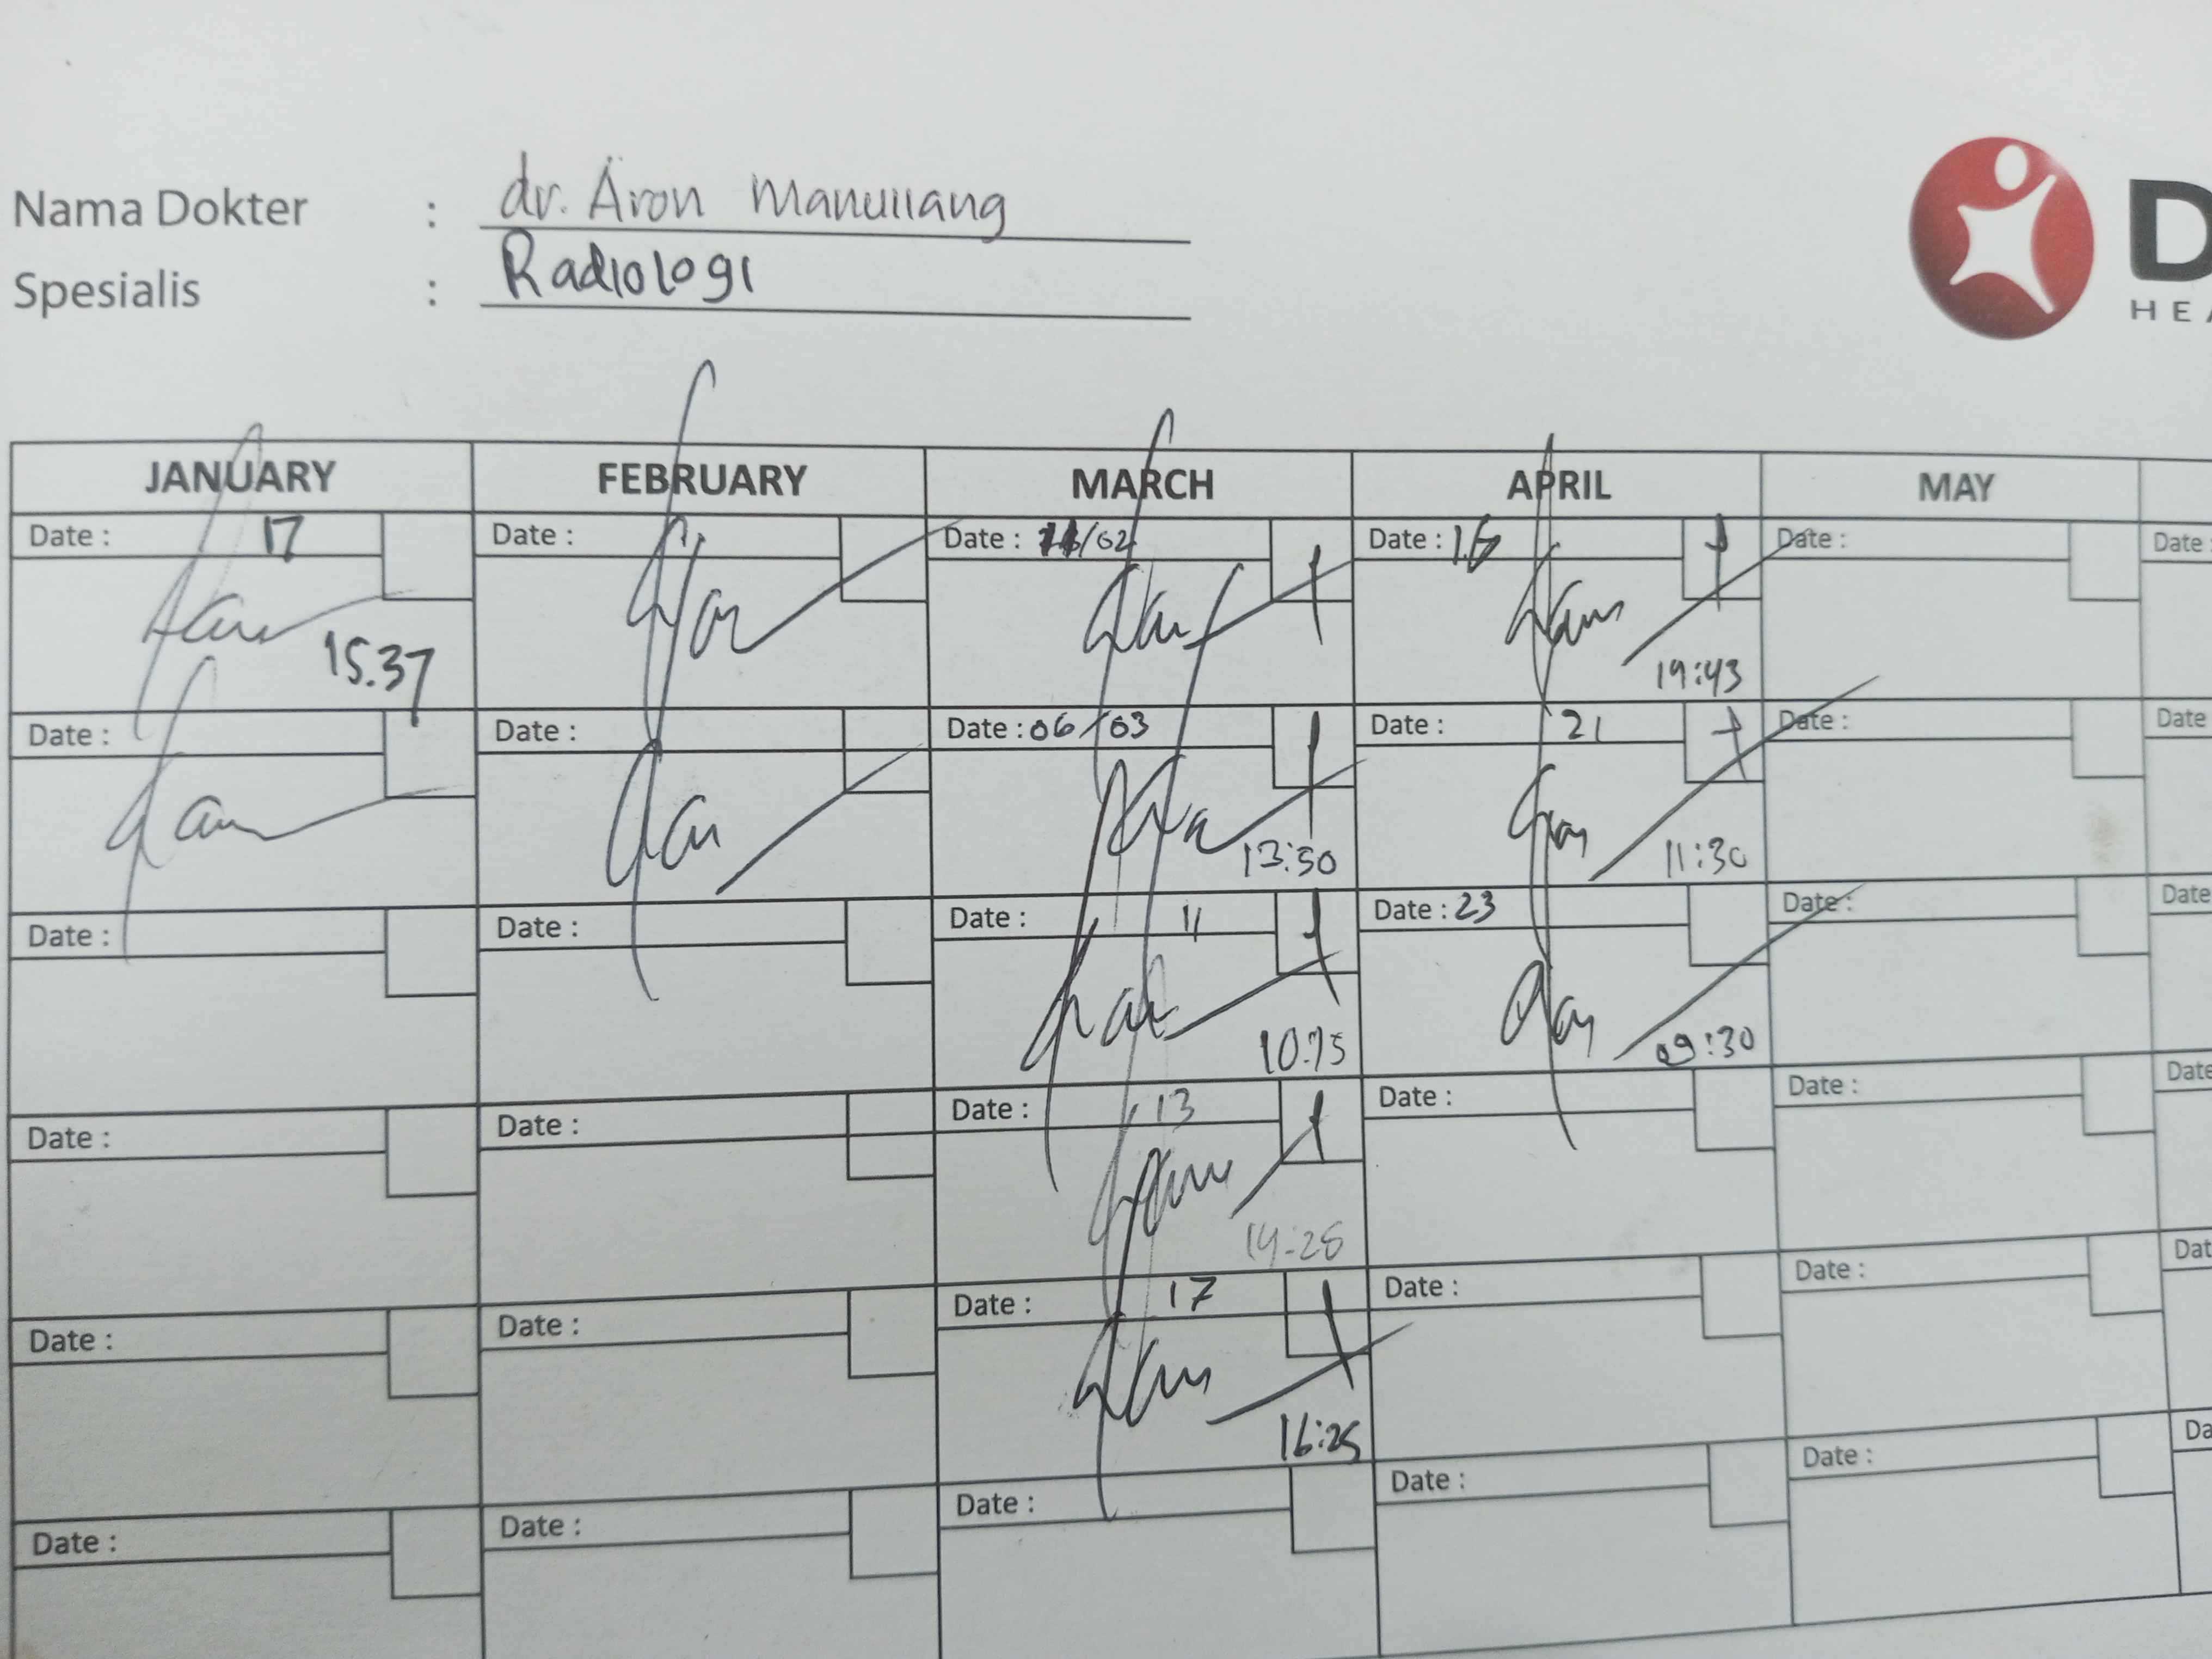 Nama Dokter : dr. Aron Manullang
Spesialis : Radiologi
D
HEA
JANUARY FEBRUARY MARCH APRIL MAY
Date : 17 Date : Date : /02 Date : 16 Date : Date :
15.37 19:43
Date : Date : Date : 06/03 Date : 21 Date : Date
13:50 11:30
Date : Date : Date : 11 Date : 23 Date : Date
10:15 09:30
Date : Date : Date : 13 Date : Date : Date
Date : Date : Date : 17 Date : Date : Dat
16:25
Date : Date : Date : Date : Date : Da